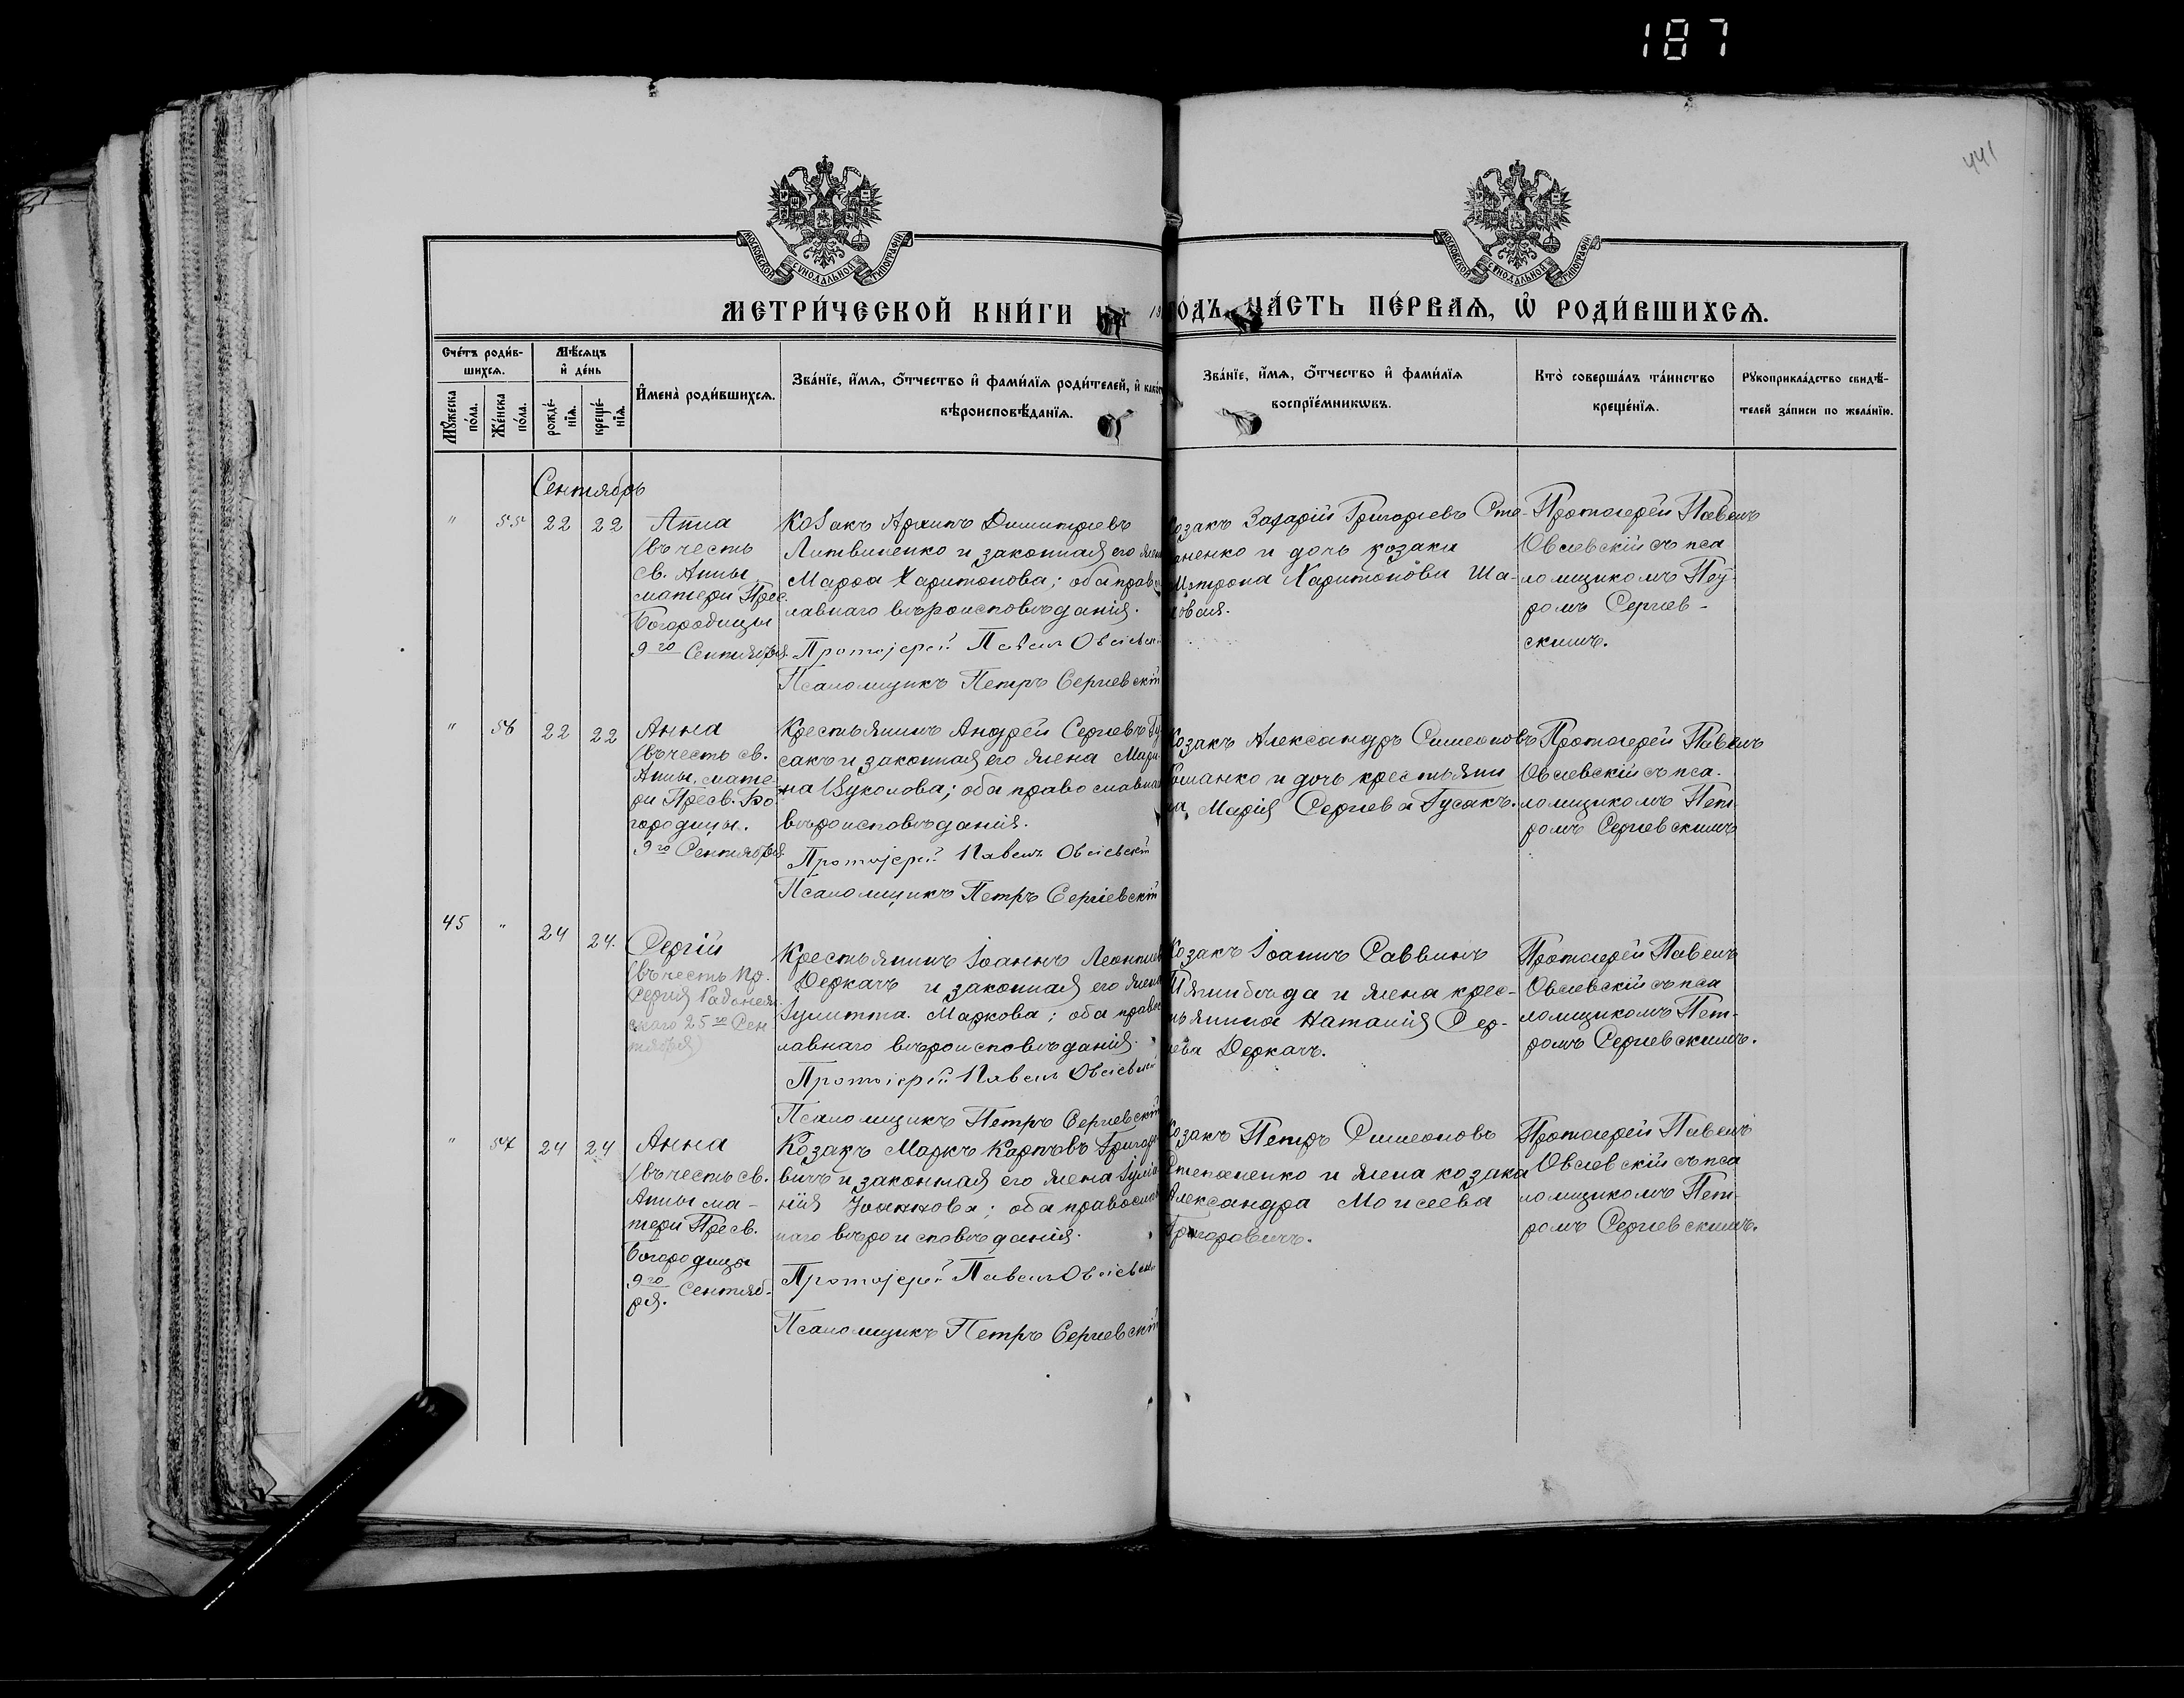 187
441
МОСКОВСКОЙ СѴНОДАЛЬНОЙ ТИПОГРАФІИ
МОСКОВСКОЙ СѴНОДАЛЬНОЙ ТИПОГРАФІИ
МЕТРИ́ЧЕСКОЙ КНИ́ГИ НА 18 ГОДЪ, ЧА́СТЬ ПЕ́РВАѦ, Ѡ҆ РОДИ́ВШИХСѦ.
Сче́тъ роди́в-
шихсѧ.
Мѣ́сѧцъ
и҆ де́нь
Мꙋ́жеска по́ла.
Же́нска по́ла.
рожде́-
нїѧ.
креще́-
нїѧ.
И҆мена̀ роди́вшихсѧ.
Зва́нїе, и҆́мѧ, ѻ҆́тчество и҆ фами́лїѧ роди́телей, и҆ како́г
вѣроисповѣ́данїѧ.
Зва́нїе, и҆́мѧ, ѻ҆́тчество и҆ фами́лїѧ
воспрїе́мникѡвъ.
Кто̀ соверша́лъ та́инство
креще́нїѧ.
Рꙋкоприкла́дство свидѣ́-
телей за́писи по жела́нїю.
Сентябрь
" 55 22 22
Анна
(въ честь
св. Анны
матери Прес.
Богородицы
9го Сентября.
Козакъ Архипъ Димитріевъ
Литвиненко и законная его жен
Марѳа Харитонова; оба прав
лавнаго вѣроисповѣданія.
Протоіерей Павелъ Овсіевск
Псаломщикъ Петръ Сергіевскій
Козакъ Захарій Григоріевъ Сте-
паненко и дочь козака
Матрона Харитонова Ша-
повал.
Протоіерей Павелъ
Овсіевскій съ пса
ломщикомъ Пет-
ромъ Сергіев-
скимъ.
" 56 22 22
Анна
(въ честь св.
Анны, мате-
ри Пресв. Бо-
городицы.
9го Сентября.
Крестьянинъ Андрей Сергіевъ Гу
сакъ и законная его жена Мари
на Вуколова; оба православна
вѣроисповѣданія.
Протоіерей Павелъ Овсіевскій
Псаломщикъ Петръ Сергіевскій
Козакъ Александръ Симеоновъ
Романко и дочь крестьяни
на Марія Сергіева Гусакъ.
Протоіерей Павелъ
Овсіевскій съ пса-
ломщикомъ Пет
ромъ Сергіевскимъ
45 " 24 24.
Сергій
(въ честь пр.
Сергія Радонеж
скаго 25го Сен
тября)
Крестьянинъ Іоаннъ Леонтіев
Деркачъ и законная его жена
Іулитта Маркова; оба правос
лавнаго вѣроисповѣданія.
Протоіерей Павелъ Овсіевскій
Псаломщикъ Петръ Сергіевскій
Козакъ Іоаннъ Саввинъ
и жена крес-
тьянина Наталія Сер-
гіева Деркачъ.
Протоіерей Павелъ
Овсіевскій съ пса
ломщикомъ Пет-
ромъ Сергіевскимъ.
" 57 24 24
Анна
(въ честь св.
Анны ма-
тери Пресв.
Богородицы
9го Сентяб-
ря.
Козакъ Маркъ Карповъ Григоро
вичъ и законная его жена Іуліа
нія Іоаннова; оба православ
наго вѣроисповѣданія.
Протоіерей Павелъ Овсіевскій
Псаломщикъ Петръ Сергіевскій
Козакъ Петръ Симеоновъ
Степаненко и жена козака
Александра Моисеева
Григоровичъ.
Протоіерей Павелъ
Овсіевскій съ пса
ломщикомъ Пет-
ромъ Сергіевскимъ.